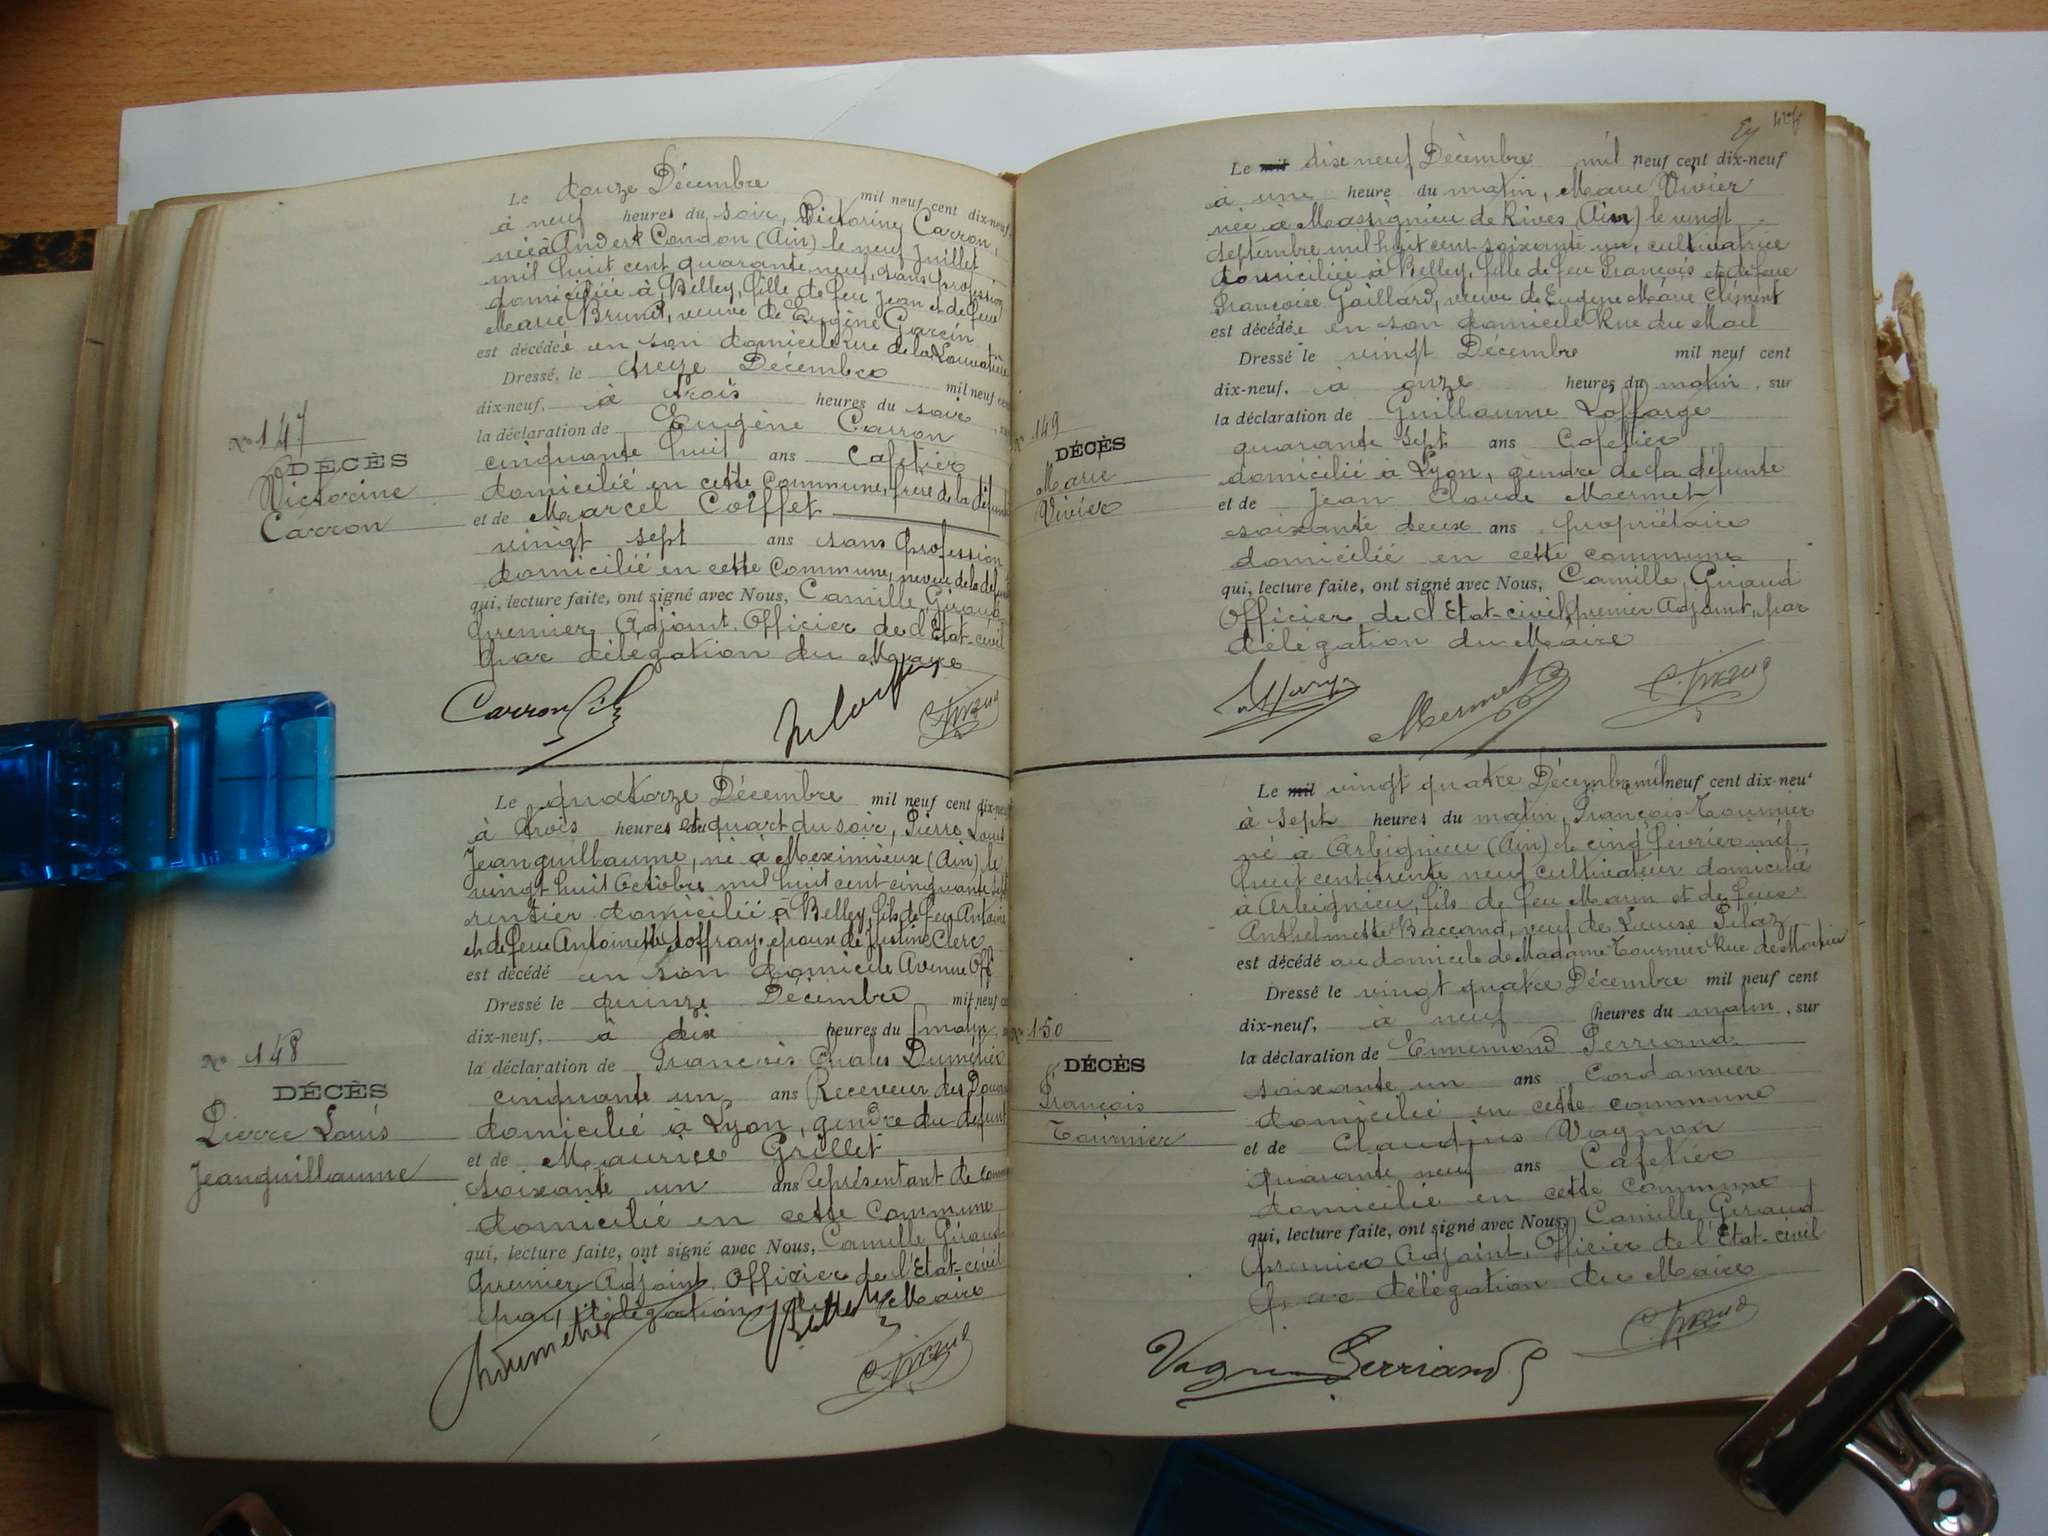 Le douze Décembre mil neuf cent dix-neuf,
à neuf heures du soir, Victorine Carron,
née à Andert Condon (Ain) le neuf Juillet
mil huit cent quarante neuf, sans profession
domiciliée à Belley, fille de feu Jean et de feue
Marie Brunet, veuve de Eugène Garcin
est décédée en son domicile rue de la
Dressé, le treize Décembre mil neuf cent
dix-neuf, à trois heures du soir
la déclaration de Eugène Carron
Nº 147
DÉCÈS
Victorine
Carron
cinquante huit ans Cafetier
domicilié en cette Commune, frère de la défunte
et de Marcel Coiffet
vingt sept ans sans profession
domicilié en cette Commune, neveu de la
qui, lecture faite, ont signé avec Nous, Camille Giraud
premier Adjoint, Officier de l'Etat-civil
par délégation du Maire
Carron
C. Giraud
Le quatorze Décembre mil neuf cent dix-neuf
à trois heures et quart du soir, Pierre Louis
Jeanguillaume, né à Meximieux (Ain) le
vingt huit Octobre mil huit cent cinquante sept
rentier domicilié à Belley, fils de feu Antoine
et de feue Antoinette Joffray, époux de Justine Clerc
est décédé en son domicile Avenue
Dressé le quinze Décembre mil neuf
dix-neuf, à dix heures du matin
Nº 148
DÉCÈS
Pierre Louis
Jeanguillaume
la déclaration de François Duméter
cinquante un ans Receveur des
domicilié à Lyon, gendre du défunt
et de Maurice Grillet
soixante un ans Représentant de
domicilié en cette Commune
qui, lecture faite, ont signé avec Nous, Camille Giraud
premier Adjoint Officier de l'Etat-civil
par délégation du Maire
C. Giraud
Le mil dix neuf Décembre mil neuf cent dix-neuf
à une heure du matin, Marie Vivier
née à Massignieu de Rives (Ain) le vingt
Septembre mil huit cent soixante un, cultivatrice
domiciliée à Belley, fille de feu François et de feue
Françoise Gaillard, veuve de Eugène Marie Clément
est décédée en son domicile Rue du Mail
Dressé le vingt Décembre mil neuf cent
dix-neuf, à onze heures du matin, sur
la déclaration de Guillaume Loffarge
Nº 149
DÉCÈS
Marie
Vivier
quarante sept ans Cafetier
domicilié à Lyon, gendre de la défunte
et de Jean Claude Mermet
soixante deux ans propriétaire
domicilié en cette commune
qui, lecture faite, ont signé avec Nous, Camille Giraud
Officier de l'Etat-civil, premier Adjoint, par
délégation du Maire
Mermet
C. Giraud
Le mil vingt quatre Décembre mil neuf cent dix-neuf
à sept heures du matin, François Tournier
né à Arbignieu (Ain) le cinq février mil
huit cent trente neuf cultivateur domicilié
à Arbignieu, fils de feu Marin et de feue
Anthelmette Baccand, veuf de Louise Pilaz
est décédé au domicile de Madame Tournier Rue de
Dressé le vingt quatre Décembre mil neuf cent
dix-neuf, à neuf heures du matin, sur
la déclaration de Ennemond Perriand
Nº 150
DÉCÈS
François
Tournier
soixante un ans Cordonnier
domicilié en cette commune
et de Claudius Vagnon
quarante neuf ans Cafetier
domicilié en cette commune
qui, lecture faite, ont signé avec Nous, Camille Giraud
premier Adjoint, Officier de l'Etat-civil
par délégation du Maire
Vagnon Perriand
C. Giraud